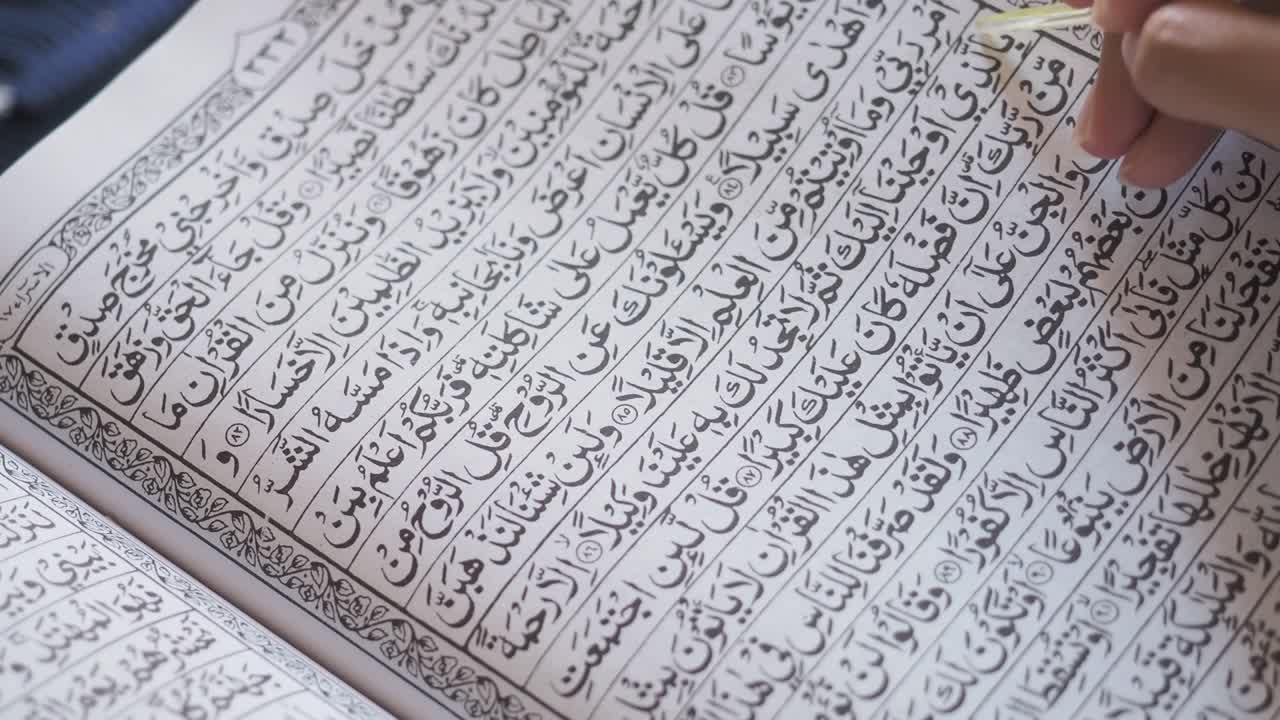 مُدْخَلَ صِدْقٍ وَّاَخْرِجْنِيْ مُخْرَجَ صِدْقٍ
لَّدُنْكَ سُلْطٰنًا نَّصِيْرًا ٨٠ وَقُلْ جَآءَ الْحَقُّ وَزَهَقَ
الْبَاطِلَ كَانَ زَهُوْقًا ٨١ وَنُنَزِّلُ مِنَ الْقُرْاٰنِ مَا
لِّلْمُؤْمِنِيْنَ وَلَا يَزِيْدُ الظّٰلِمِيْنَ اِلَّا خَسَارًا ٨٢ وَ
عَلَى الْاِنْسَانِ اَعْرَضَ وَنَاٰبِجَانِبِهٖ وَاِذَا مَسَّهُ الشَّرُّ
يَئُوْسًا ٨٣ قُلْ كُلٌّ يَّعْمَلُ عَلٰى شَاكِلَتِهٖ فَرَبُّكُمْ اَعْلَمُ بِمَنْ
اَهْدٰى سَبِيْلًا ٨٤ وَيَسْئَلُوْنَكَ عَنِ الرُّوْحِ قُلِ الرُّوْحُ مِنْ
اَمْرِ رَبِّيْ وَمَآ اُوْتِيْتُمْ مِّنَ الْعِلْمِ اِلَّا قَلِيْلًا ٨٥ وَلَئِنْ شِئْنَا لَنَذْهَبَنَّ
بِالَّذِيْٓ اَوْحَيْنَآ اِلَيْكَ ثُمَّ لَا تَجِدُ لَكَ بِهٖ عَلَيْنَا وَكِيْلًا ٨٦ اِلَّا رَحْمَةً
مِّنْ رَّبِّكَ اِنَّ فَضْلَهٗ كَانَ عَلَيْكَ كَبِيْرًا ٨٧ قُلْ لَّئِنِ اجْتَمَعَتِ
وَالْجِنُّ عَلٰٓى اَنْ يَّأْتُوْا بِمِثْلِ هٰذَا الْقُرْاٰنِ لَا يَأْتُوْنَ بِمِثْلِ
بَعْضُهُمْ لِبَعْضٍ ظَهِيْرًا ٨٨ وَلَقَدْ صَرَّفْنَا لِلنَّاسِ فِيْ هٰذَا
مِنْ كُلِّ مَثَلٍ فَاَبٰىٓ اَكْثَرُ النَّاسِ اِلَّا كُفُوْرًا ٨٩ وَقَالُوْا لَنْ نُّؤْمِنَ
تَفْجُرَ لَنَا مِنَ الْاَرْضِ يَنْبُوْعًا ٩٠ اَوْ تَكُوْنَ لَكَ
الْاَنْهٰرَ خِلٰلَهَا تَفْجِيْرًا ٩١ اَوْ تُسْقِطَ
وَالْمَلٰٓئِكَةِ قَبِيْلًا